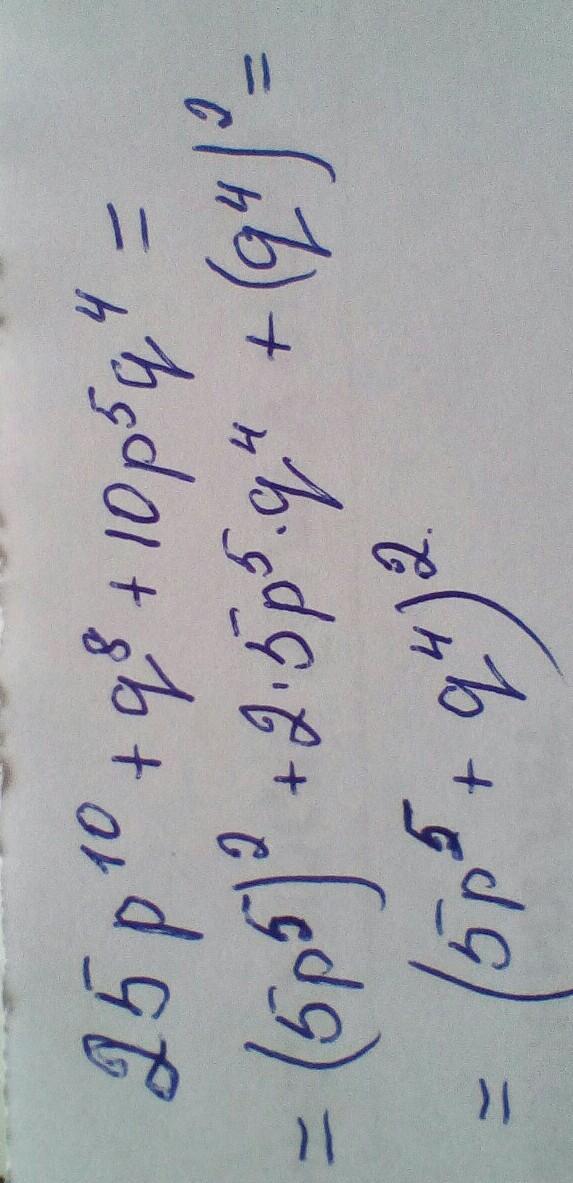 25p¹⁰ + q⁸ + 10p⁵q⁴ =
= (5p⁵)² + 2·5p⁵·q⁴ + (q⁴)² =
= (5p⁵ + q⁴)².